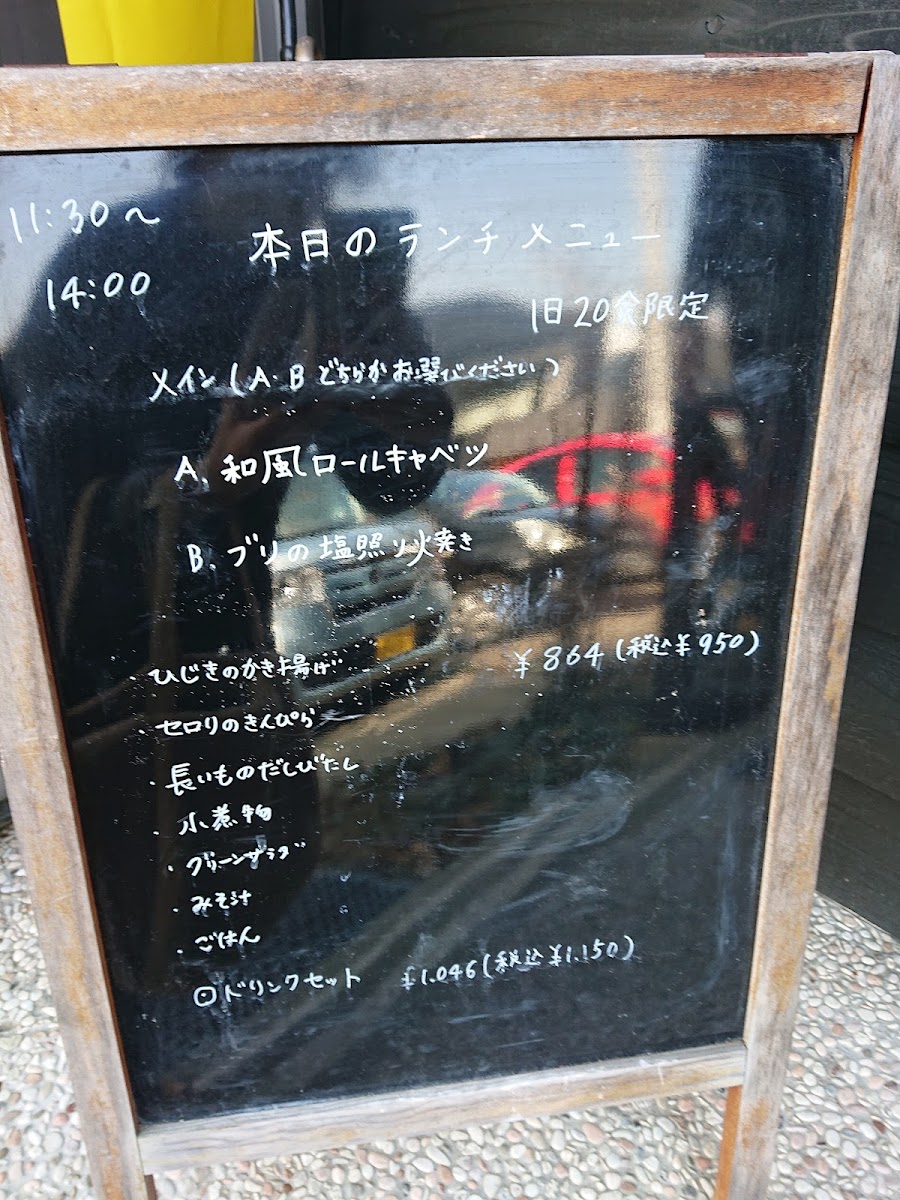 11:30〜
14:00
本日のランチメニュー
1日20食限定
メイン(A・Bどちらかお選びください)
A. 和風ロールキャベツ
B. ブリの塩照り焼き
・ひじきのかき揚げ
¥864(税込¥950)
・セロリのきんぴら
・長いものだしびたし
・小煮物
・グリーンサラダ
・みそ汁
・ごはん
◎ドリンクセット ¥1.046(税込¥1.150)